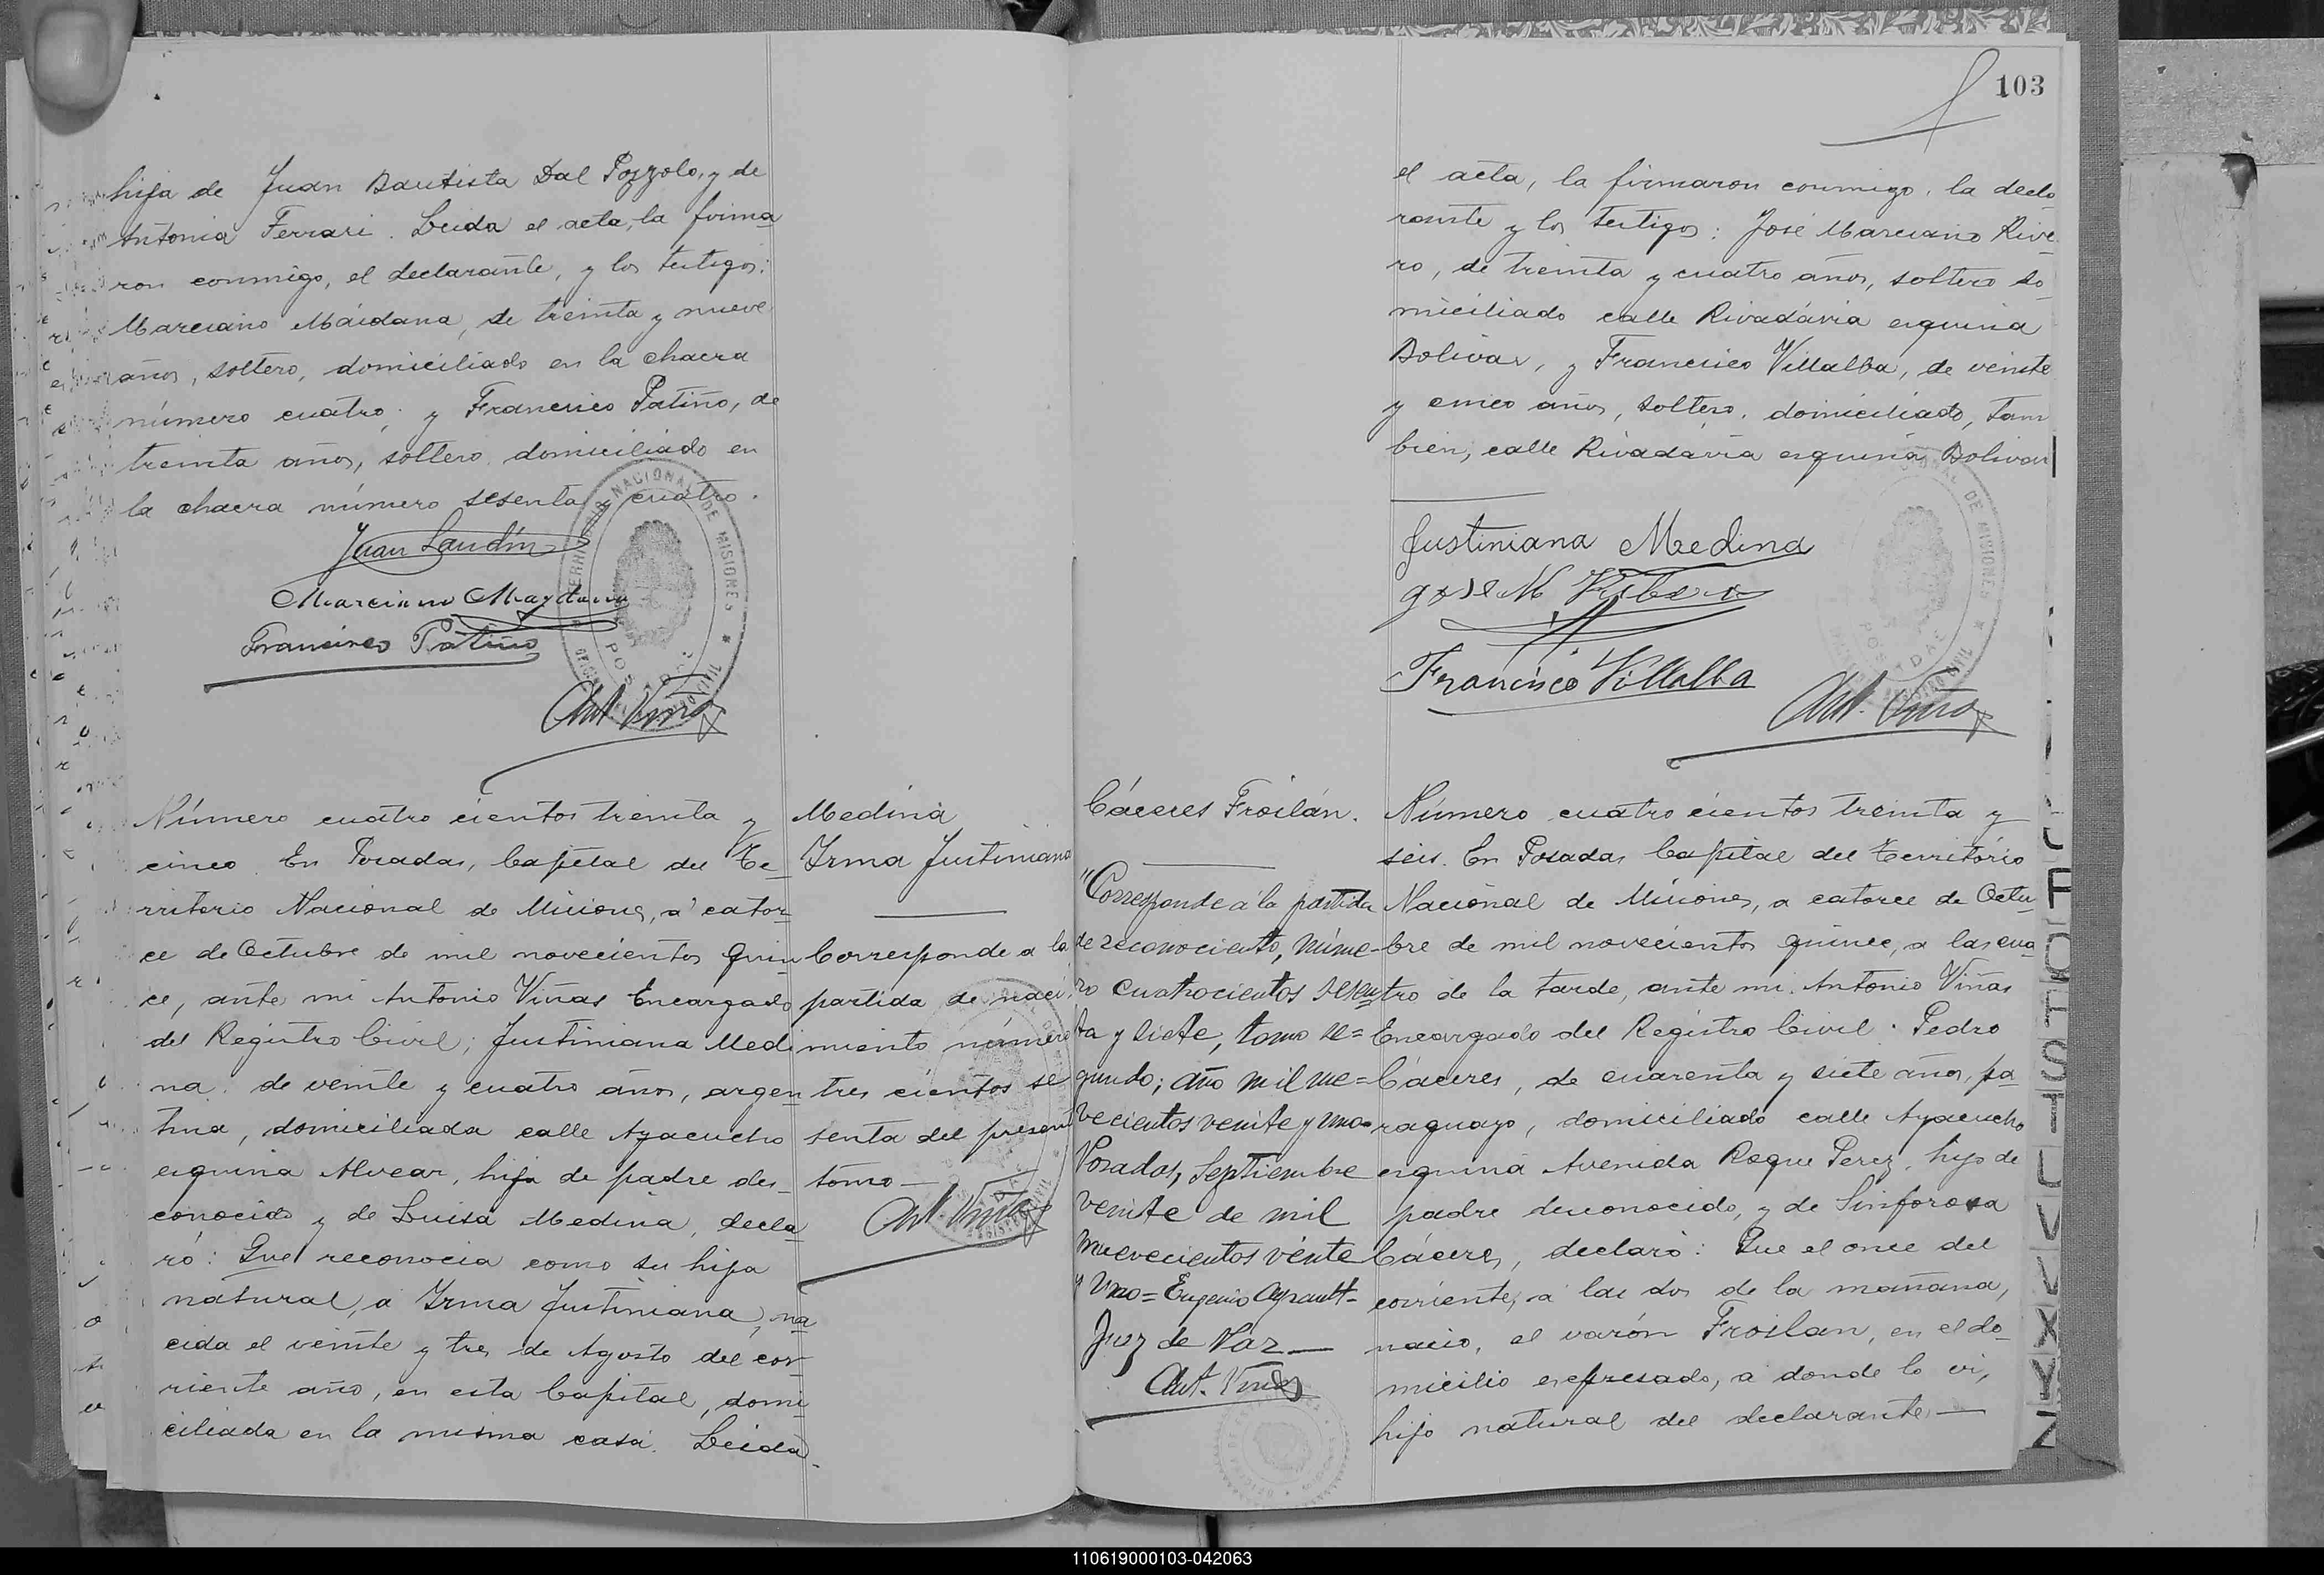 hija de Juan Bautista Dal Pozzolo, y de
Antonia Ferrari. Leida el acta, la firma
ron conmigo, el declarante, y los testigos:
Marciano Máidana, de treinta y nueve
años, soltero, domiciliado en la chacra
número cuatro; y Francisco Patiño, de
treinta años, soltero, domiciliado en
la chacra número sesenta y cuatro.
Juan Landin
Marciano Maydana
Francisco Patiño
Ant. Viñas
TERRITORIO NACIONAL DE MISIONES
POSADAS
Número cuatro cientos treinta y
cinco. En Posadas, Capital del Te-
rritorio Nacional de Misiones, a cator-
ce de Octubre de mil novecientos quin
ce, ante mi Antonio Viñas Encargado
del Registro Civil; Justiniana Medi
na, de veinte y cuatro años, argen
tina, domiciliada calle Ayacucho
esquina Alvear, hija de padre des-
conocido y de Luisa Medina, decla
ró: Que reconocia como su hija
natural, a Irma Justiniana, na
cida el veinte y tres de Agosto del cor-
riente año, en esta Capital, domi
ciliada en la misma casa. Leida
Medina
Irma Justiniana
Corresponde a la
partida de naci
miento número
tres cientos se
senta del presente
tomo—
Ant. Viñas
103
el acta, la firmaron conmigo, la decla
rante y los testigos: José Marciano Rive
ro, de treinta y cuatro años, soltero do-
miciliado calle Rivadávia esquina
Bolivar, y Francisco Villalba, de veinte
y cinco años, soltero, domiciliado, tam
bien, calle Rivadávia esquina Bolivar
Justiniana Medina
Jose M Ribero
Francisco Villalba
Ant. Viñas
Cáceres Froilán.
"Corresponde á la partida
de reconociento, núme-
ro cuatrocientos sesen
ta y siete, tomo se=
gundo; año mil no=
vecientos veinte y uno=
Posadas, Septiembre
veinte de mil
nuevecientos vente
y uno= Eugenio Ayrault-
Juez de Paz—
Ant. Viñas
Número cuatro cientos treinta y
seis. En Posadas Capital del Territorio
Nacional de Misiones, a catorce de Octu-
bre de mil novecientos quince, a las cua
tro de la tarde, ante mi. Antonio Viñas
Encargado del Registro Civil. Pedro
Cáceres, de cuarenta y siete años, pa
raguayo, domiciliado calle Ayacucho
esquina Avenida Roque Perez, hijo de
padre desconocido, y de Sinforosa
Cáceres, declaró: Que el once del
corriente, a las dos de la mañana,
nacio, el varón Froilan, en el do-
micilio expresado, a donde lo vi,
hijo natural del declarante—
S
T
U
V
X
Y
Z
110619000103-042063